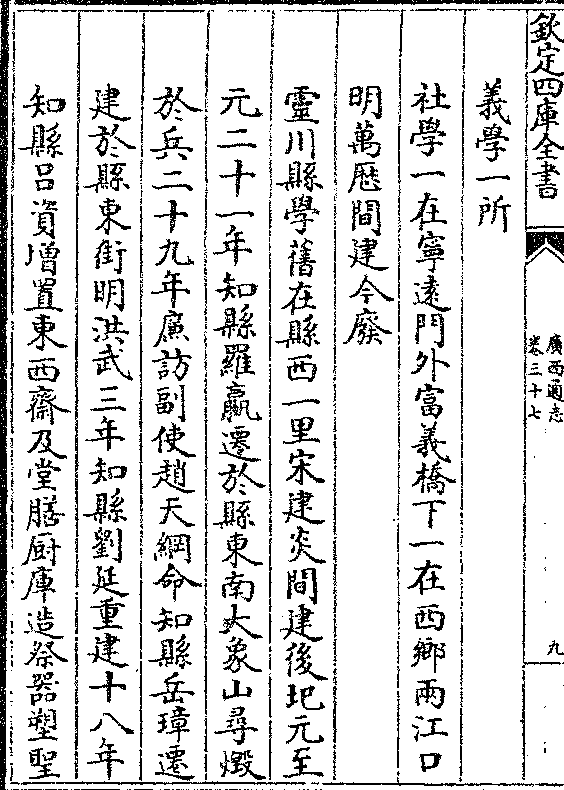 欽定四庫全書
廣西通志
卷三十七
九
義學一所
社學一在寧遠門外富義橋下一在西鄉兩江口
明萬厯間建今廢
靈川縣學舊在縣西一里宋建炎間建後圮元至
元二十一年知縣羅贏遷於縣東南大象山尋燬
於兵二十九年廉訪副使趙天綱命知縣岳璋遷
建於縣東街明洪武三年知縣劉延重建十八年
知縣吕資增置東西齋及堂膳厨庫造祭器塑聖